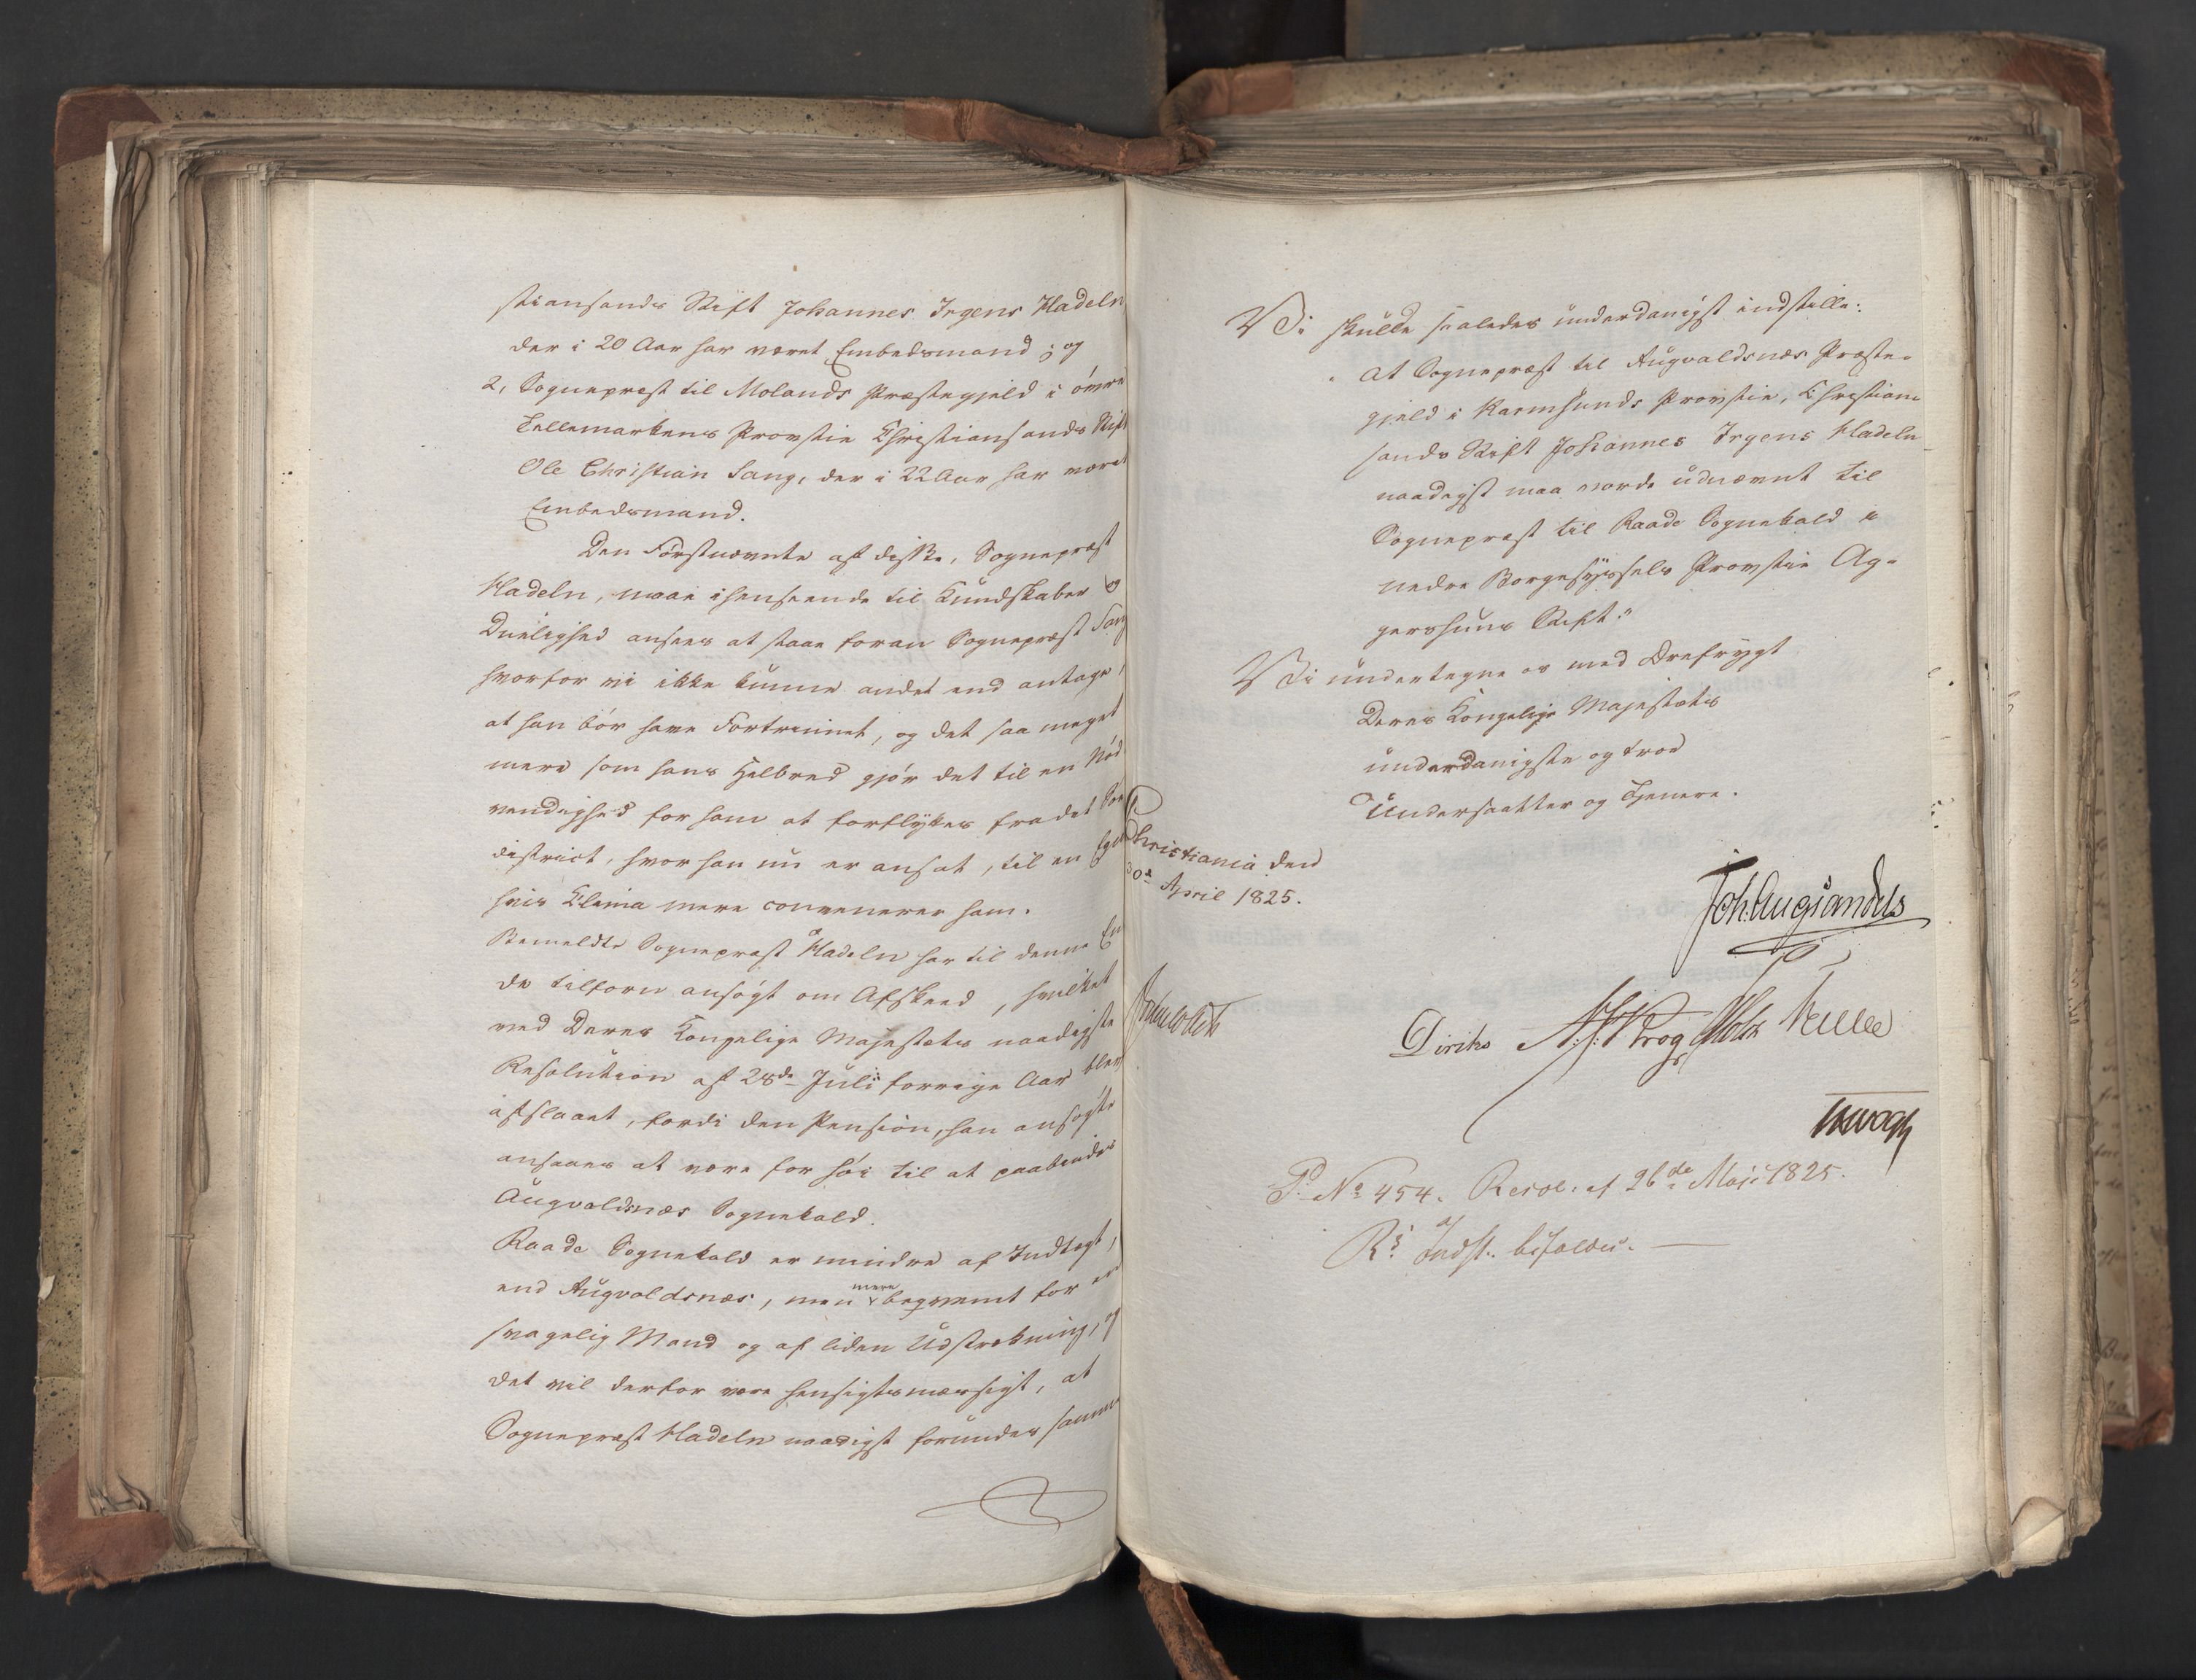 stiansands Stift Johannes Irgens Hadeln
der i 20 Aar har været Embedsmand; og
2, Sognepræst til Molands Præstegjeld i övre
Tellemarkens Provstie Christiansands Stift
Ole Christian Lang, der i 22 Aar har været
Embedsmand.
Den Förstnævnte af disse, Sognepræst
Hadeln, maae i henseende til Kundskaber og
Duelighed ansees at staae foran Sognepræst Lang
hvorfor vi ikke kunne andet end antage,
at han bör have Fortrinnet, og det saa meget
mere som hans Helbred gjör det til en Nöd
vendighed for ham at forflyttes fra det Söe
district, hvor han nu er ansat, til en Egn
hvis Clima mere convenerer ham.
Bemeldte Sognepræst Hadeln har til denne En
de tilforn ansögt om Afskeed, hvilket
ved Deres Kongelige Majestæts naadigste
Resolution af 28de Julii forrige Aar blev
afslaaet, fordi den Pension, han ansögte
ansaaes at være for höi til at paabindes
Augvaldsnæs Sognekald.
Raade Sognekald er mindre af Indtægt,
end Augvaldsnæs, men mere beqvemt for en
svagelig Mand og af liden Udstrækning, og
det vil derfor være hensigtsmæssigt, at
Sognepræst Hadeln naadigst forundes samme
Vi skulle saaledes underdanigst indstille:
"at Sognepræst til Augvaldsnæs Præste-
gjeld i Karmsunds Provstie, Christian-
sands Stift Johannes Irgens Hadeln
naadigst maa vorde udnævnt til
Sognepræst til Raade Sognekald i
nedre Borgesyssels Provstie Ag-
gershuus Stift."
Vi undertegne os med Ærefrygt
Deres Kongelige Majestæts
underdanigste og troe
Undersaatter og Tjenere.
Christiania den
30te April 1825.
Joh. Aug. Sandels
Diriks N. J. Krog Holst
P. No 454. Resol. af 26de Maji 1825.
Rs Indst. bifaldes.